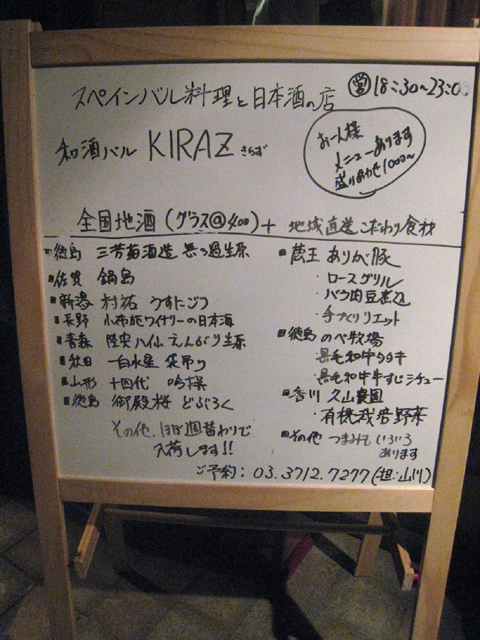 スペインバル料理と日本酒の店
営 18:30~23:00
和酒バル KIRAZ きらず
お一人様
メニューあります
盛りあわせ1000~
全国地酒(グラス@400)+ 地域直送こだわり食材
徳島 三芳菊酒造 無ろ過生原
佐賀 鍋島
新潟 村祐 うすにごり
長野 小布施ワイナリーの日本酒
青森 陸奥八仙 えんがり生原
秋田 一白水成 袋吊り
山形 十四代 吟撰
徳島 御殿桜 どぶろく
その他、ほぼ週替わりで
入荷します!!
蔵王 ありが豚
・ロースグリル
・バラ肉豆煮込
・手づくりリエット
徳島 のべ牧場
・黒毛和牛タタキ
・黒毛和牛牛すじシチュー
香川 久山農園
・有機栽培野菜
その他 つまみもいろいろ
あります
ご予約: 03.3712.7277(担:山川)